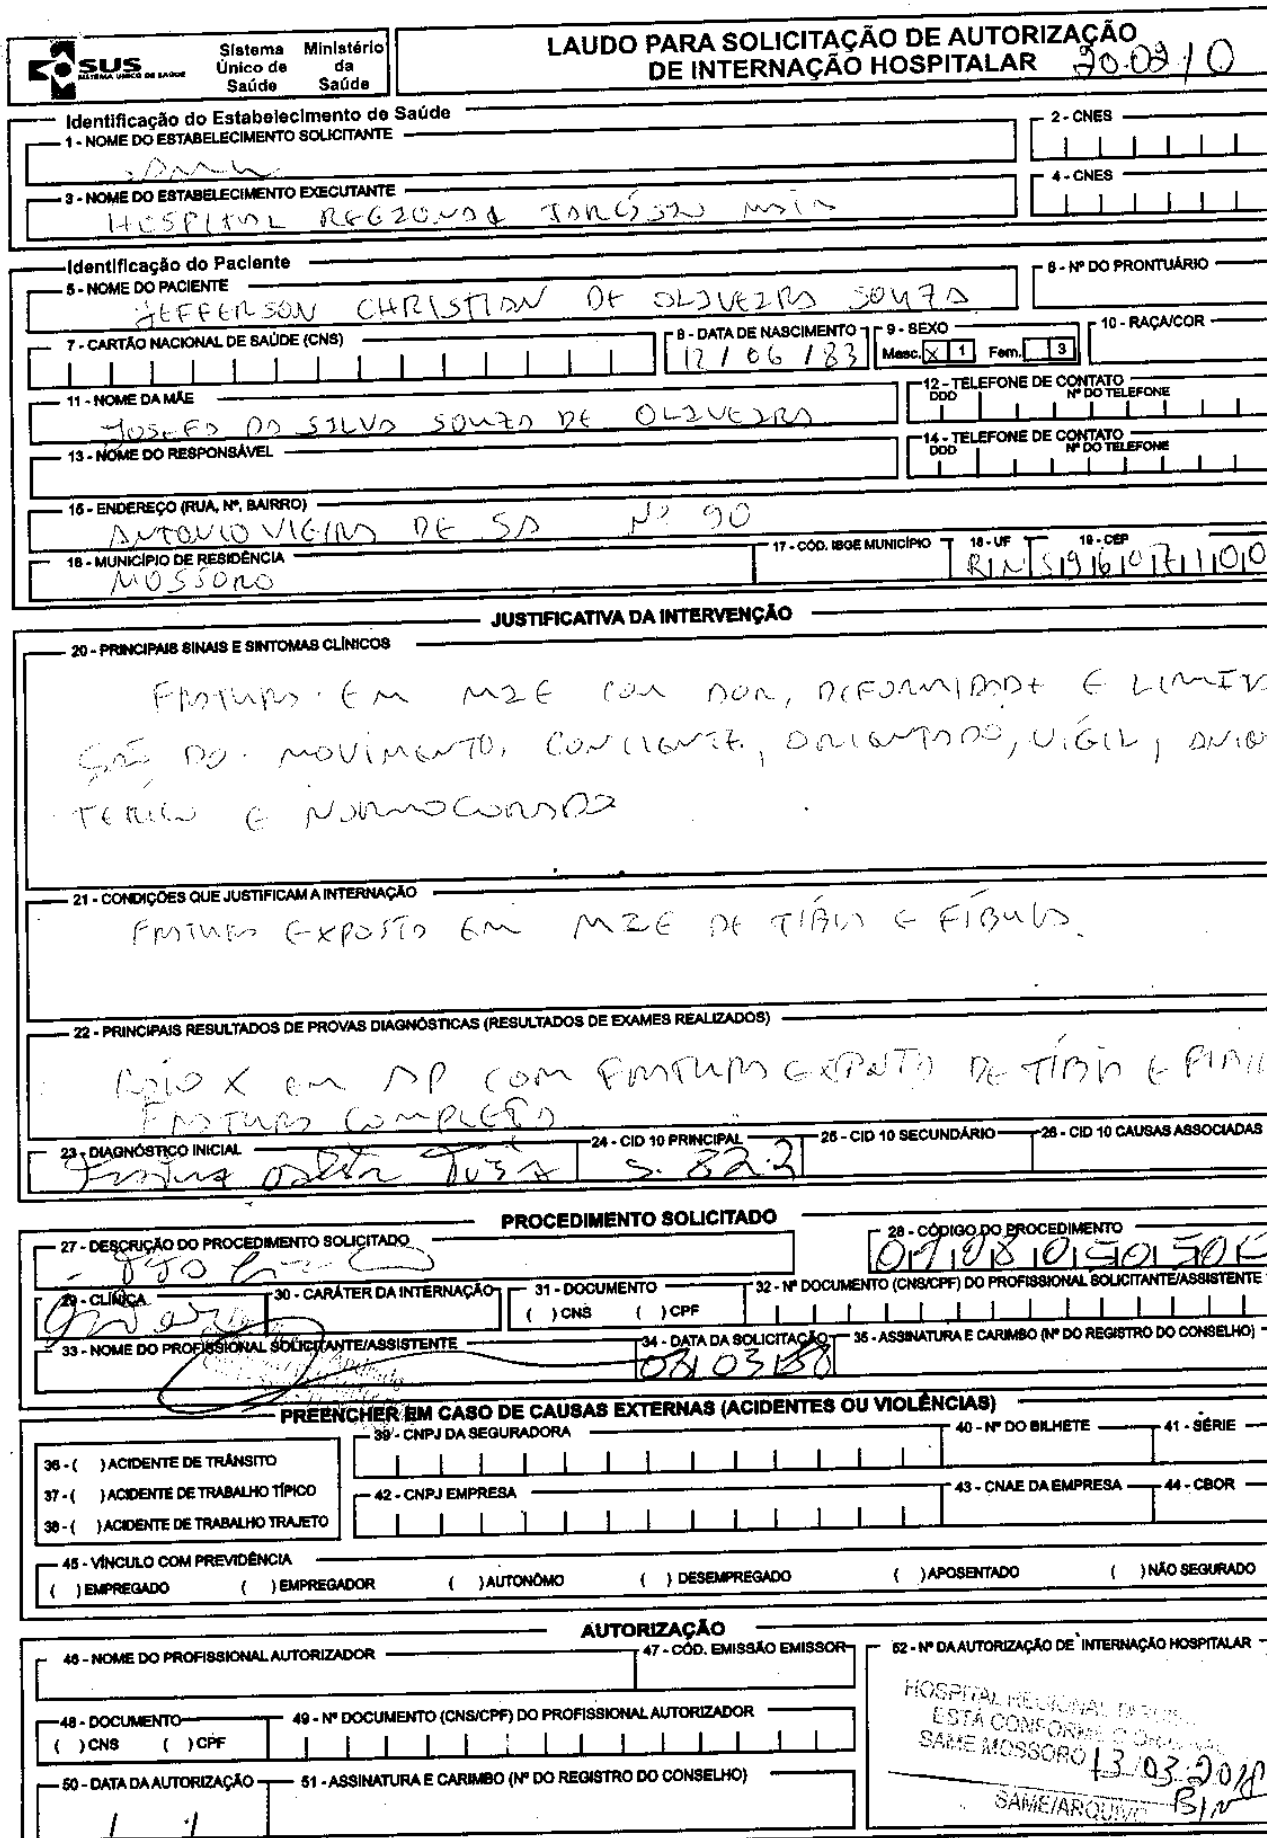 SUS
SISTEMA ÚNICO DE SAÚDE
Sistema Único de Saúde
Ministério da Saúde
LAUDO PARA SOLICITAÇÃO DE AUTORIZAÇÃO
DE INTERNAÇÃO HOSPITALAR
Identificação do Estabelecimento de Saúde
1 - NOME DO ESTABELECIMENTO SOLICITANTE
2 - CNES
3 - NOME DO ESTABELECIMENTO EXECUTANTE
HOSPITAL REGIONAL TARCÍSIO MAIA
4 - CNES
Identificação do Paciente
5 - NOME DO PACIENTE
JEFFERSON CHRISTIAN DE OLIVEIRA SOUZA
6 - Nº DO PRONTUÁRIO
7 - CARTÃO NACIONAL DE SAÚDE (CNS)
8 - DATA DE NASCIMENTO
12 / 06 / 83
9 - SEXO
Masc. X 1 Fem. 3
10 - RAÇA/COR
11 - NOME DA MÃE
JOSEFA DA SILVA SOUZA DE OLIVEIRA
12 - TELEFONE DE CONTATO
DDD Nº DO TELEFONE
13 - NOME DO RESPONSÁVEL
14 - TELEFONE DE CONTATO
DDD Nº DO TELEFONE
15 - ENDEREÇO (RUA, Nº, BAIRRO)
ANTONIO VIEIRA DE SA Nº 90
16 - MUNICÍPIO DE RESIDÊNCIA
MOSSORO
17 - CÓD. IBGE MUNICÍPIO
18 - UF
RN
19 - CEP
59607100
JUSTIFICATIVA DA INTERVENÇÃO
20 - PRINCIPAIS SINAIS E SINTOMAS CLÍNICOS
FRATURA EM MIE COM DOR, DEFORMIDADE E LIMITA
ÇÃO DO MOVIMENTO, CONCIENTE, ORIENTADO, VÍGIL,
E NORMOCORADO
21 - CONDIÇÕES QUE JUSTIFICAM A INTERNAÇÃO
FRATURA EXPOSTA EM MIE DE TÍBIA E FÍBULA.
22 - PRINCIPAIS RESULTADOS DE PROVAS DIAGNÓSTICAS (RESULTADOS DE EXAMES REALIZADOS)
RAIO X EM AP COM FRATURA EXPOSTA DE TÍBIA E
FRATURA COMPLETA
23 - DIAGNÓSTICO INICIAL
24 - CID 10 PRINCIPAL
S. 82.2
25 - CID 10 SECUNDÁRIO
26 - CID 10 CAUSAS ASSOCIADAS
PROCEDIMENTO SOLICITADO
27 - DESCRIÇÃO DO PROCEDIMENTO SOLICITADO
28 - CÓDIGO DO PROCEDIMENTO
29 - CLÍNICA
30 - CARÁTER DA INTERNAÇÃO
31 - DOCUMENTO
( ) CNS ( ) CPF
32 - Nº DOCUMENTO (CNS/CPF) DO PROFISSIONAL SOLICITANTE/ASSISTENTE
33 - NOME DO PROFISSIONAL SOLICITANTE/ASSISTENTE
34 - DATA DA SOLICITAÇÃO
35 - ASSINATURA E CARIMBO (Nº DO REGISTRO DO CONSELHO)
PREENCHER EM CASO DE CAUSAS EXTERNAS (ACIDENTES OU VIOLÊNCIAS)
36 - ( ) ACIDENTE DE TRÂNSITO
37 - ( ) ACIDENTE DE TRABALHO TÍPICO
38 - ( ) ACIDENTE DE TRABALHO TRAJETO
39 - CNPJ DA SEGURADORA
40 - Nº DO BILHETE
41 - SÉRIE
42 - CNPJ EMPRESA
43 - CNAE DA EMPRESA
44 - CBOR
45 - VÍNCULO COM PREVIDÊNCIA
( ) EMPREGADO ( ) EMPREGADOR ( ) AUTONÔMO ( ) DESEMPREGADO ( ) APOSENTADO ( ) NÃO SEGURADO
AUTORIZAÇÃO
46 - NOME DO PROFISSIONAL AUTORIZADOR
47 - CÓD. EMISSÃO EMISSOR
52 - Nº DA AUTORIZAÇÃO DE INTERNAÇÃO HOSPITALAR
48 - DOCUMENTO
( ) CNS ( ) CPF
49 - Nº DOCUMENTO (CNS/CPF) DO PROFISSIONAL AUTORIZADOR
50 - DATA DA AUTORIZAÇÃO
/ /
51 - ASSINATURA E CARIMBO (Nº DO REGISTRO DO CONSELHO)
HOSPITAL REGIONAL
ESTÁ CONFORME O ORIGINAL
SAME MOSSORO 13/03/2018
SAME/ARQUIVO